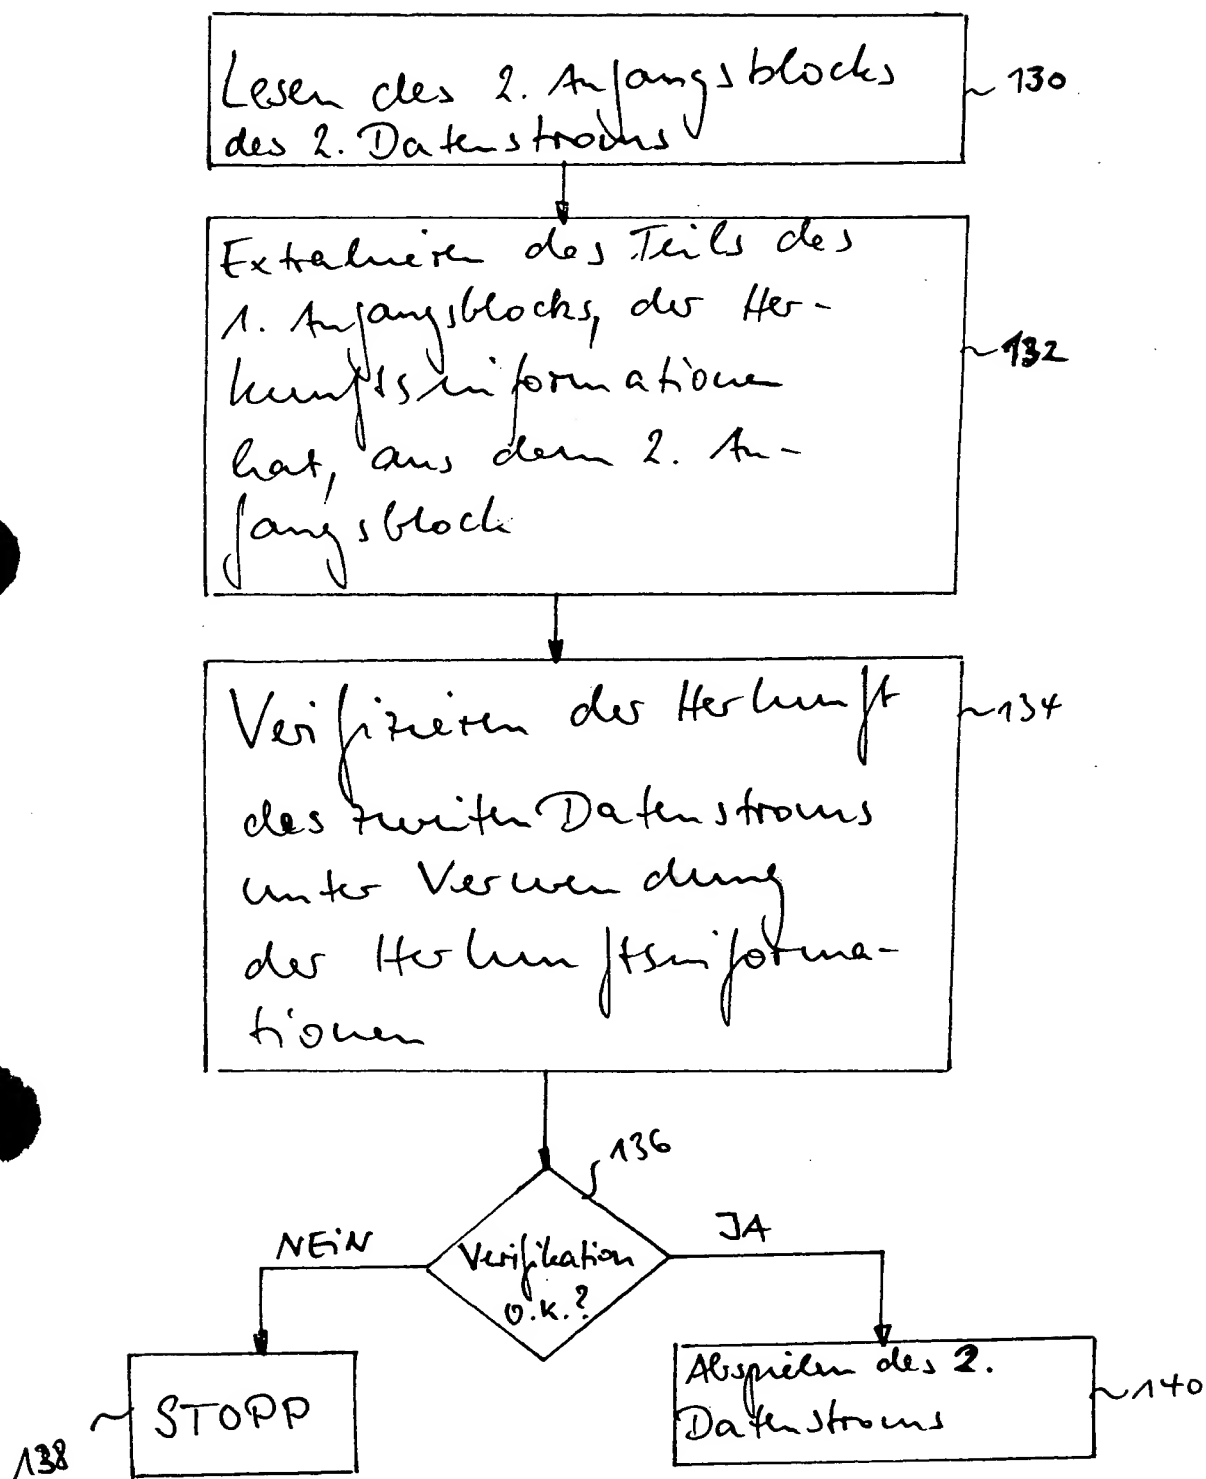 Lesen des 2. Anfangsblocks
130
des 2. Datenstroms
Extrahieren des Teils des
1. Anfangsblocks, der Her-
132
kunftsinformationen
hat, aus dem 2. An-
fangsblock
Verifizieren der Herkunft
134
des zweiten Datenstroms
unter Verwendung
der Herkunftsinforma-
tionen
136
NEIN
JA
Verifikation
o.k.?
Abspielen des 2.
140
STOPP
Datenstroms
138